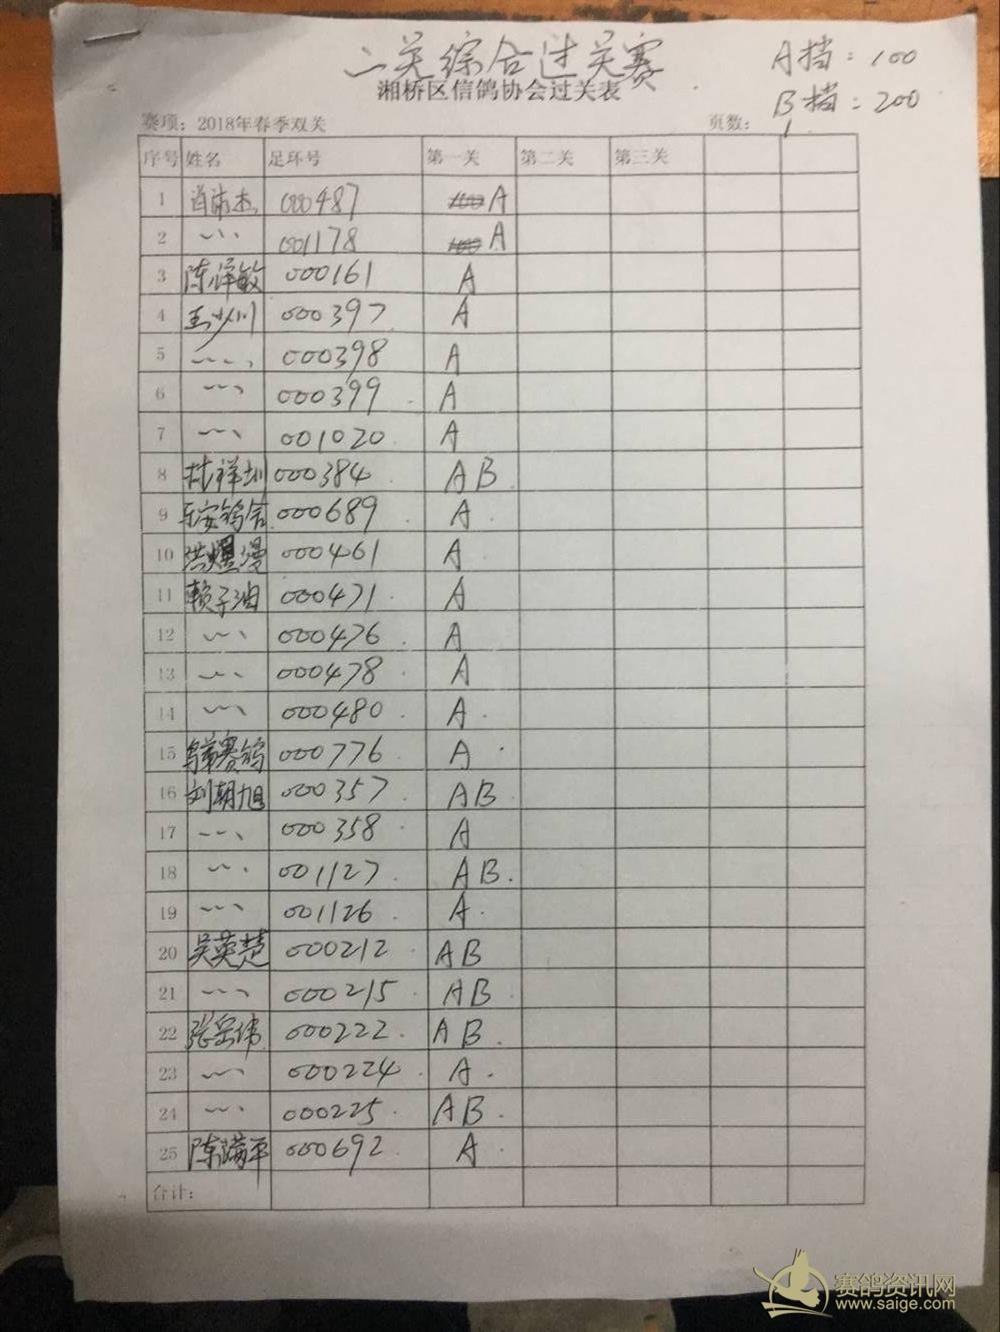 二关综合过关赛 A挡：100
湘桥区信鸽协会过关表 B挡：200
赛项：2018年春季双关 页数：1
序号 姓名 足环号 第一关 第二关 第三关
1 000487 A
2 〃 001178 A
3 陈泽敏 000161 A
4 000397 A
5 〃 000398 A
6 〃 000399 A
7 〃 001020 A
8 000384 AB
9 000689 A
10 000461 A
11 000471 A
12 〃 000476 A
13 〃 000478 A
14 〃 000480 A
15 赛鸽 000776 A
16 刘朝旭 000357 AB
17 〃 000358 A
18 〃 001127 AB
19 〃 001126 A
20 吴英楚 000212 AB
21 〃 000215 AB
22 张岳伟 000222 AB
23 〃 000224 A
24 〃 000225 AB
25 陈满平 000692 A
合计：
赛鸽资讯网
www.saige.com